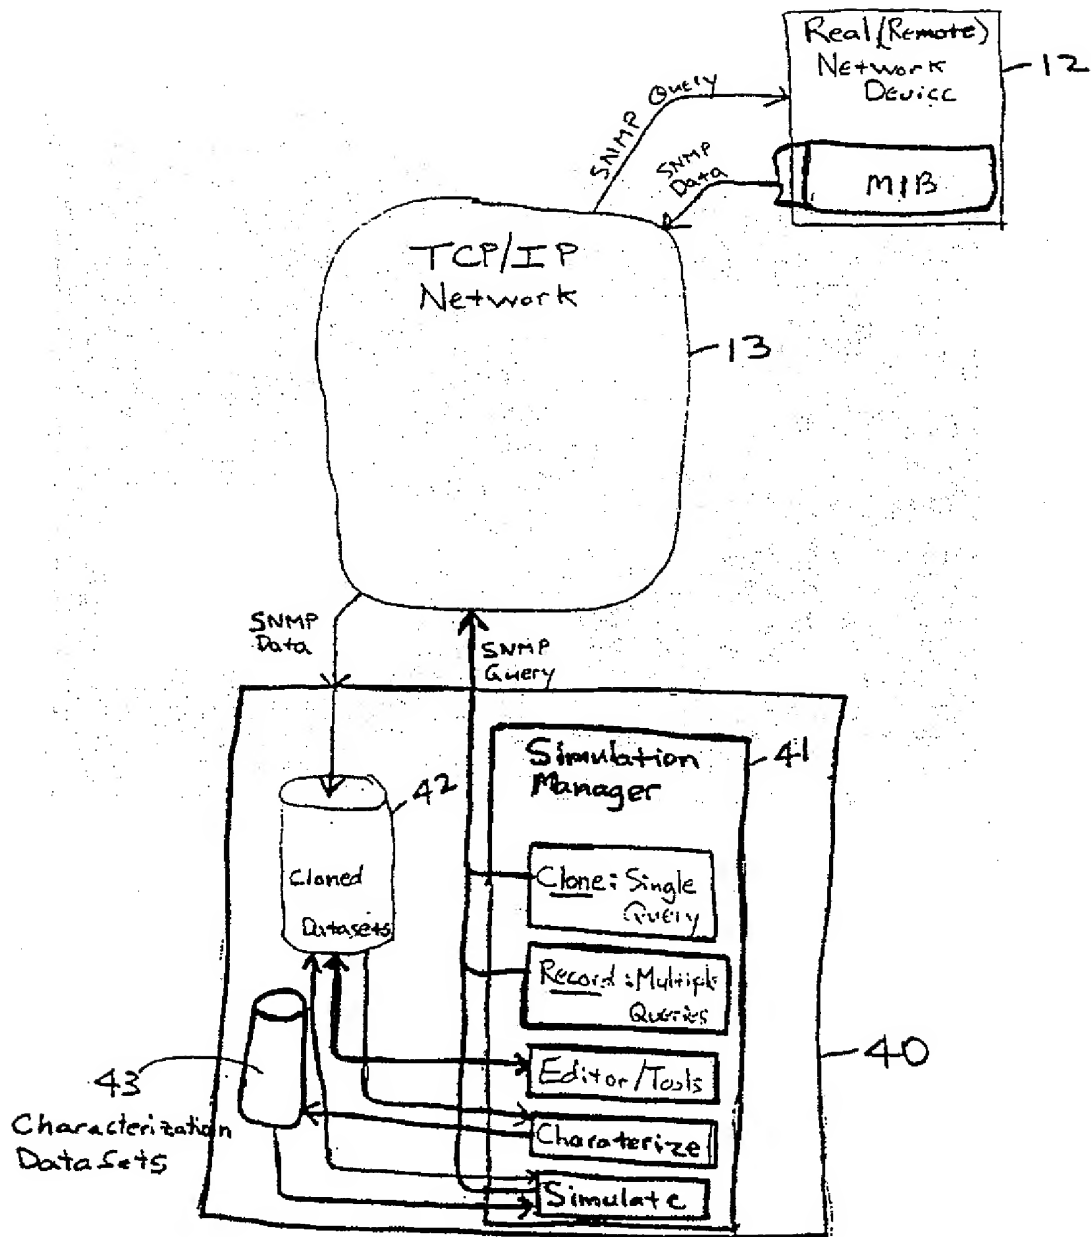 Real (Remote)
Network
Device
12
SNMP Query
SNMP
Data
MIB
TCP/IP
Network
13
SNMP
Data
SNMP
Query
Simulation
Manager
41
42
Cloned
Datasets
Clone: Single
Query
Record: Multiple
Queries
Editor/Tools
40
43
Characterization
DataSets
Charaterize
Simulate